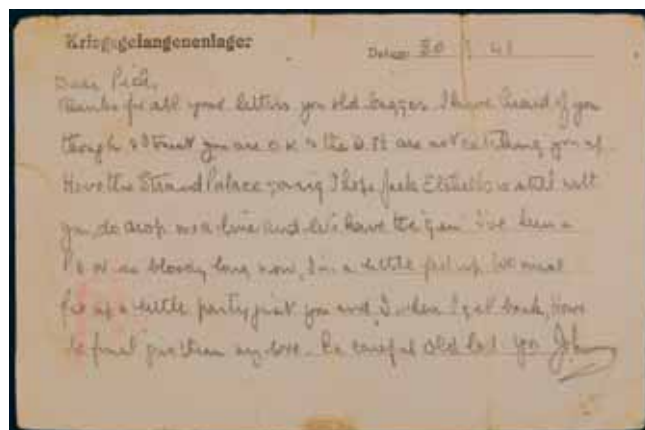 Kriegsgefangenenlager
Datum: 30 43
Dear Pick,
Thanks for all your letters you old bugger. I have heard of you
though & trust you are O.K. & the are not catching you up.
How's the Strand Palace going I hope Jack is still with
you, do drop me a line and let's have the "gen" I've been a
P.O.W. so bloody long now, I'm a little fed up. We must
fix up a little party just you and I, when I get back, How's
give them my love. Be careful old lad Yrs John